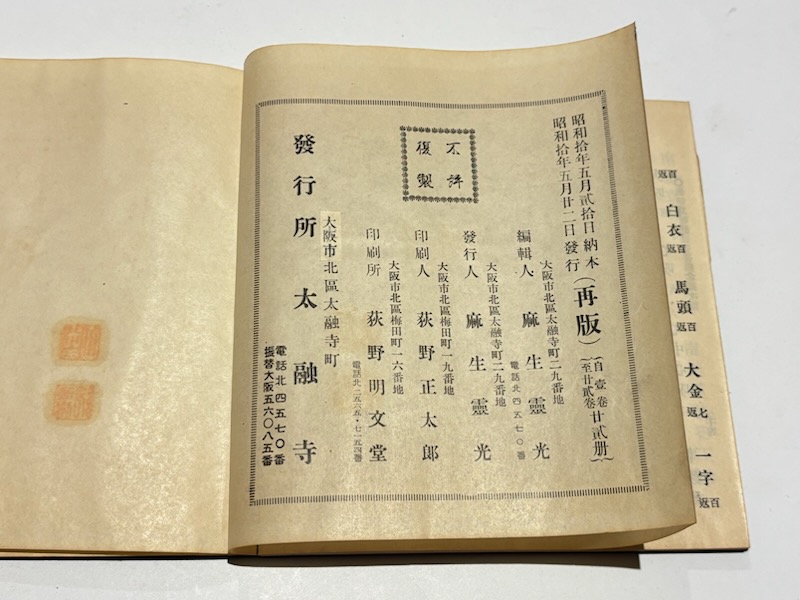 昭和拾年五月貳拾日納本
昭和拾年五月廿二日發行
(再版)
自壹卷
至廿貳卷
廿貳册
不許
復製
大阪市北區太融寺町二九番地
編輯人 麻生靈光
電話北四五七〇番
大阪市北區太融寺町二九番地
發行人 麻生靈光
大阪市北區梅田町一九番地
印刷人 荻野正太郎
大阪市北區梅田町一六番地
印刷所 荻野明文堂
電話北二五六五・七一五四番
大阪市北區太融寺町
發行所 太融寺
電話北四五七〇番
振替大阪五六〇八五番
百返
白衣 百返
馬頭 百返
大金 七返
一字 百返